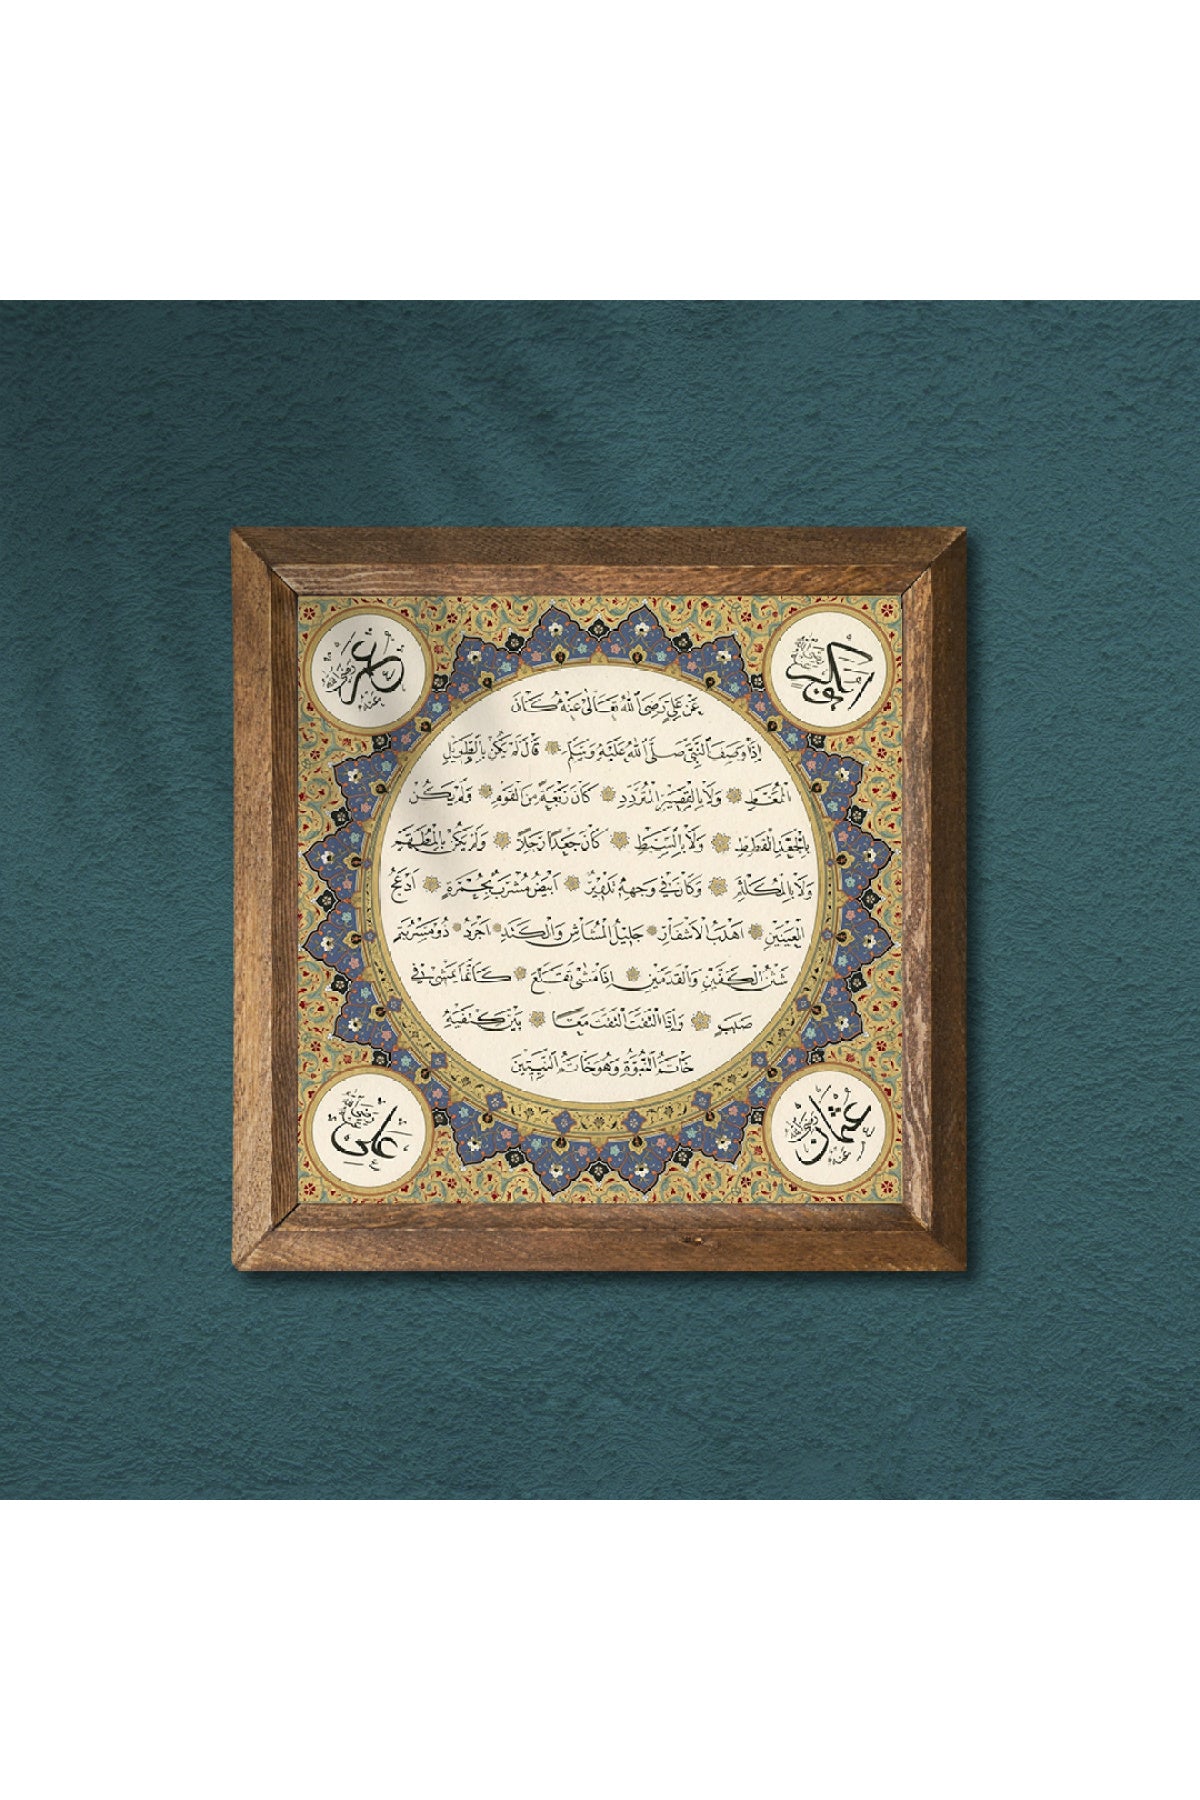 ابو بكر رضي الله عنه
عمر رضي الله عنه
عَنْ عَلِيٍّ رَضِىَ اللّٰهُ تَعَالٰى عَنْهُ كَانَ
اِذَا وَصَفَ النَّبِيَّ صَلَّى اللّٰهُ عَلَيْهِ وَسَلَّمَ قَالَ لَمْ يَكُنْ بِالطَّوِيلِ
الْمُمَّغِطِ وَلَا بِالْقَصِيرِ الْمُتَرَدِّدِ كَانَ رَبْعَةً مِنَ الْقَوْمِ وَلَمْ يَكُنْ
بِالْجَعْدِ الْقَطِطِ وَلَا بِالسَّبِطِ كَانَ جَعْدًا رَجِلًا وَلَمْ يَكُنْ بِالْمُطَهَّمِ
وَلَا بِالْمُكَلْثَمِ وَكَانَ فِي وَجْهِهِ تَدْوِيرٌ اَبْيَضُ مُشْرَبٌ بِحُمْرَةٍ اَدْعَجُ
الْعَيْنَيْنِ اَهْدَبُ الْاَشْفَارِ جَلِيلُ الْمُشَاشِ وَالْكَتَدِ اَجْرَدُ ذُو مَسْرُبَةٍ
شَثْنُ الْكَفَّيْنِ وَالْقَدَمَيْنِ اِذَا مَشٰى تَقَلَّعَ كَاَنَّمَا يَمْشِي فِي
صَبَبٍ وَاِذَا الْتَفَتَ الْتَفَتَ مَعًا بَيْنَ كَتِفَيْهِ
خَاتَمُ النُّبُوَّةِ وَهُوَ خَاتَمُ النَّبِيِّينَ
عثمان رضي الله عنه
علي رضي الله عنه